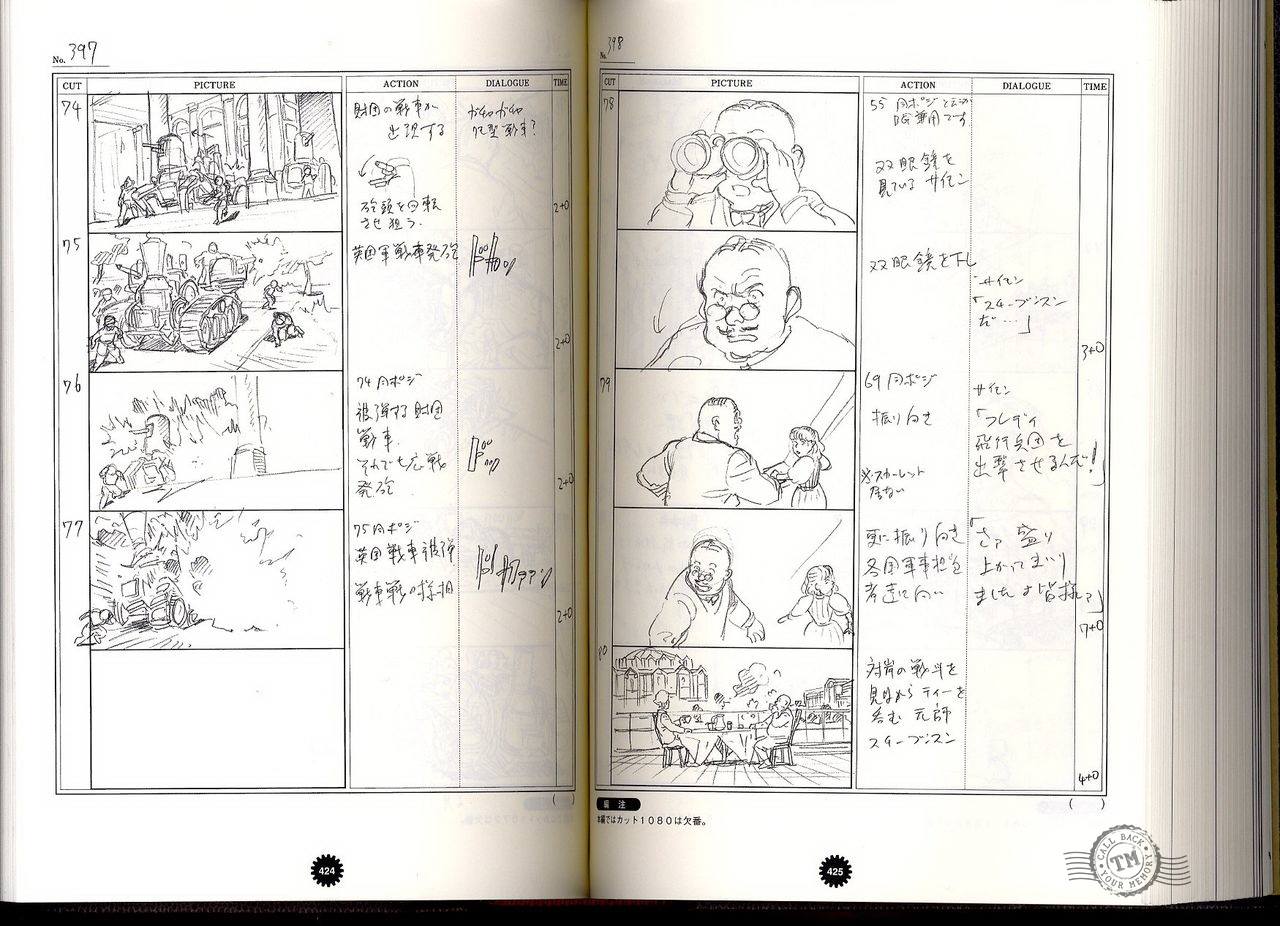 No. 397
CUT PICTURE ACTION DIALOGUE TIME
74
財団の戦車が
出現する
砲頭を回転
させ狙う.
ガチャガチャ
戦車?
2+0
75
英国軍戦車発砲
2+0
76
74 同ポジ
被弾する財団
戦車.
それでも応戦
発砲
2+0
77
75 同ポジ
英国戦車被弾
戦車戦の様相
2+0
( )
424
No. 398
CUT PICTURE ACTION DIALOGUE TIME
78
55 同ポジ
兼用です
双眼鏡を
見ている サイモン
双眼鏡を下し
サイモン
「スチーブンスン
だ…」
3+0
79
69 同ポジ
振り向き
※スカーレット
居ない
サイモン
「フレディ
飛行兵団を
出撃させるんだ!
更に振り向き
各国軍事担当
者達に向い
「さァ 盛り
上がってまいり
ましたよ皆様」
7+0
80
対岸の戦斗を
見ながら ティーを
呑む 元帥
スチーブンスン
4+0
( )
編 注
本編ではカット1080は欠番。
425
CALL BACK
TM
YOUR MEMORY